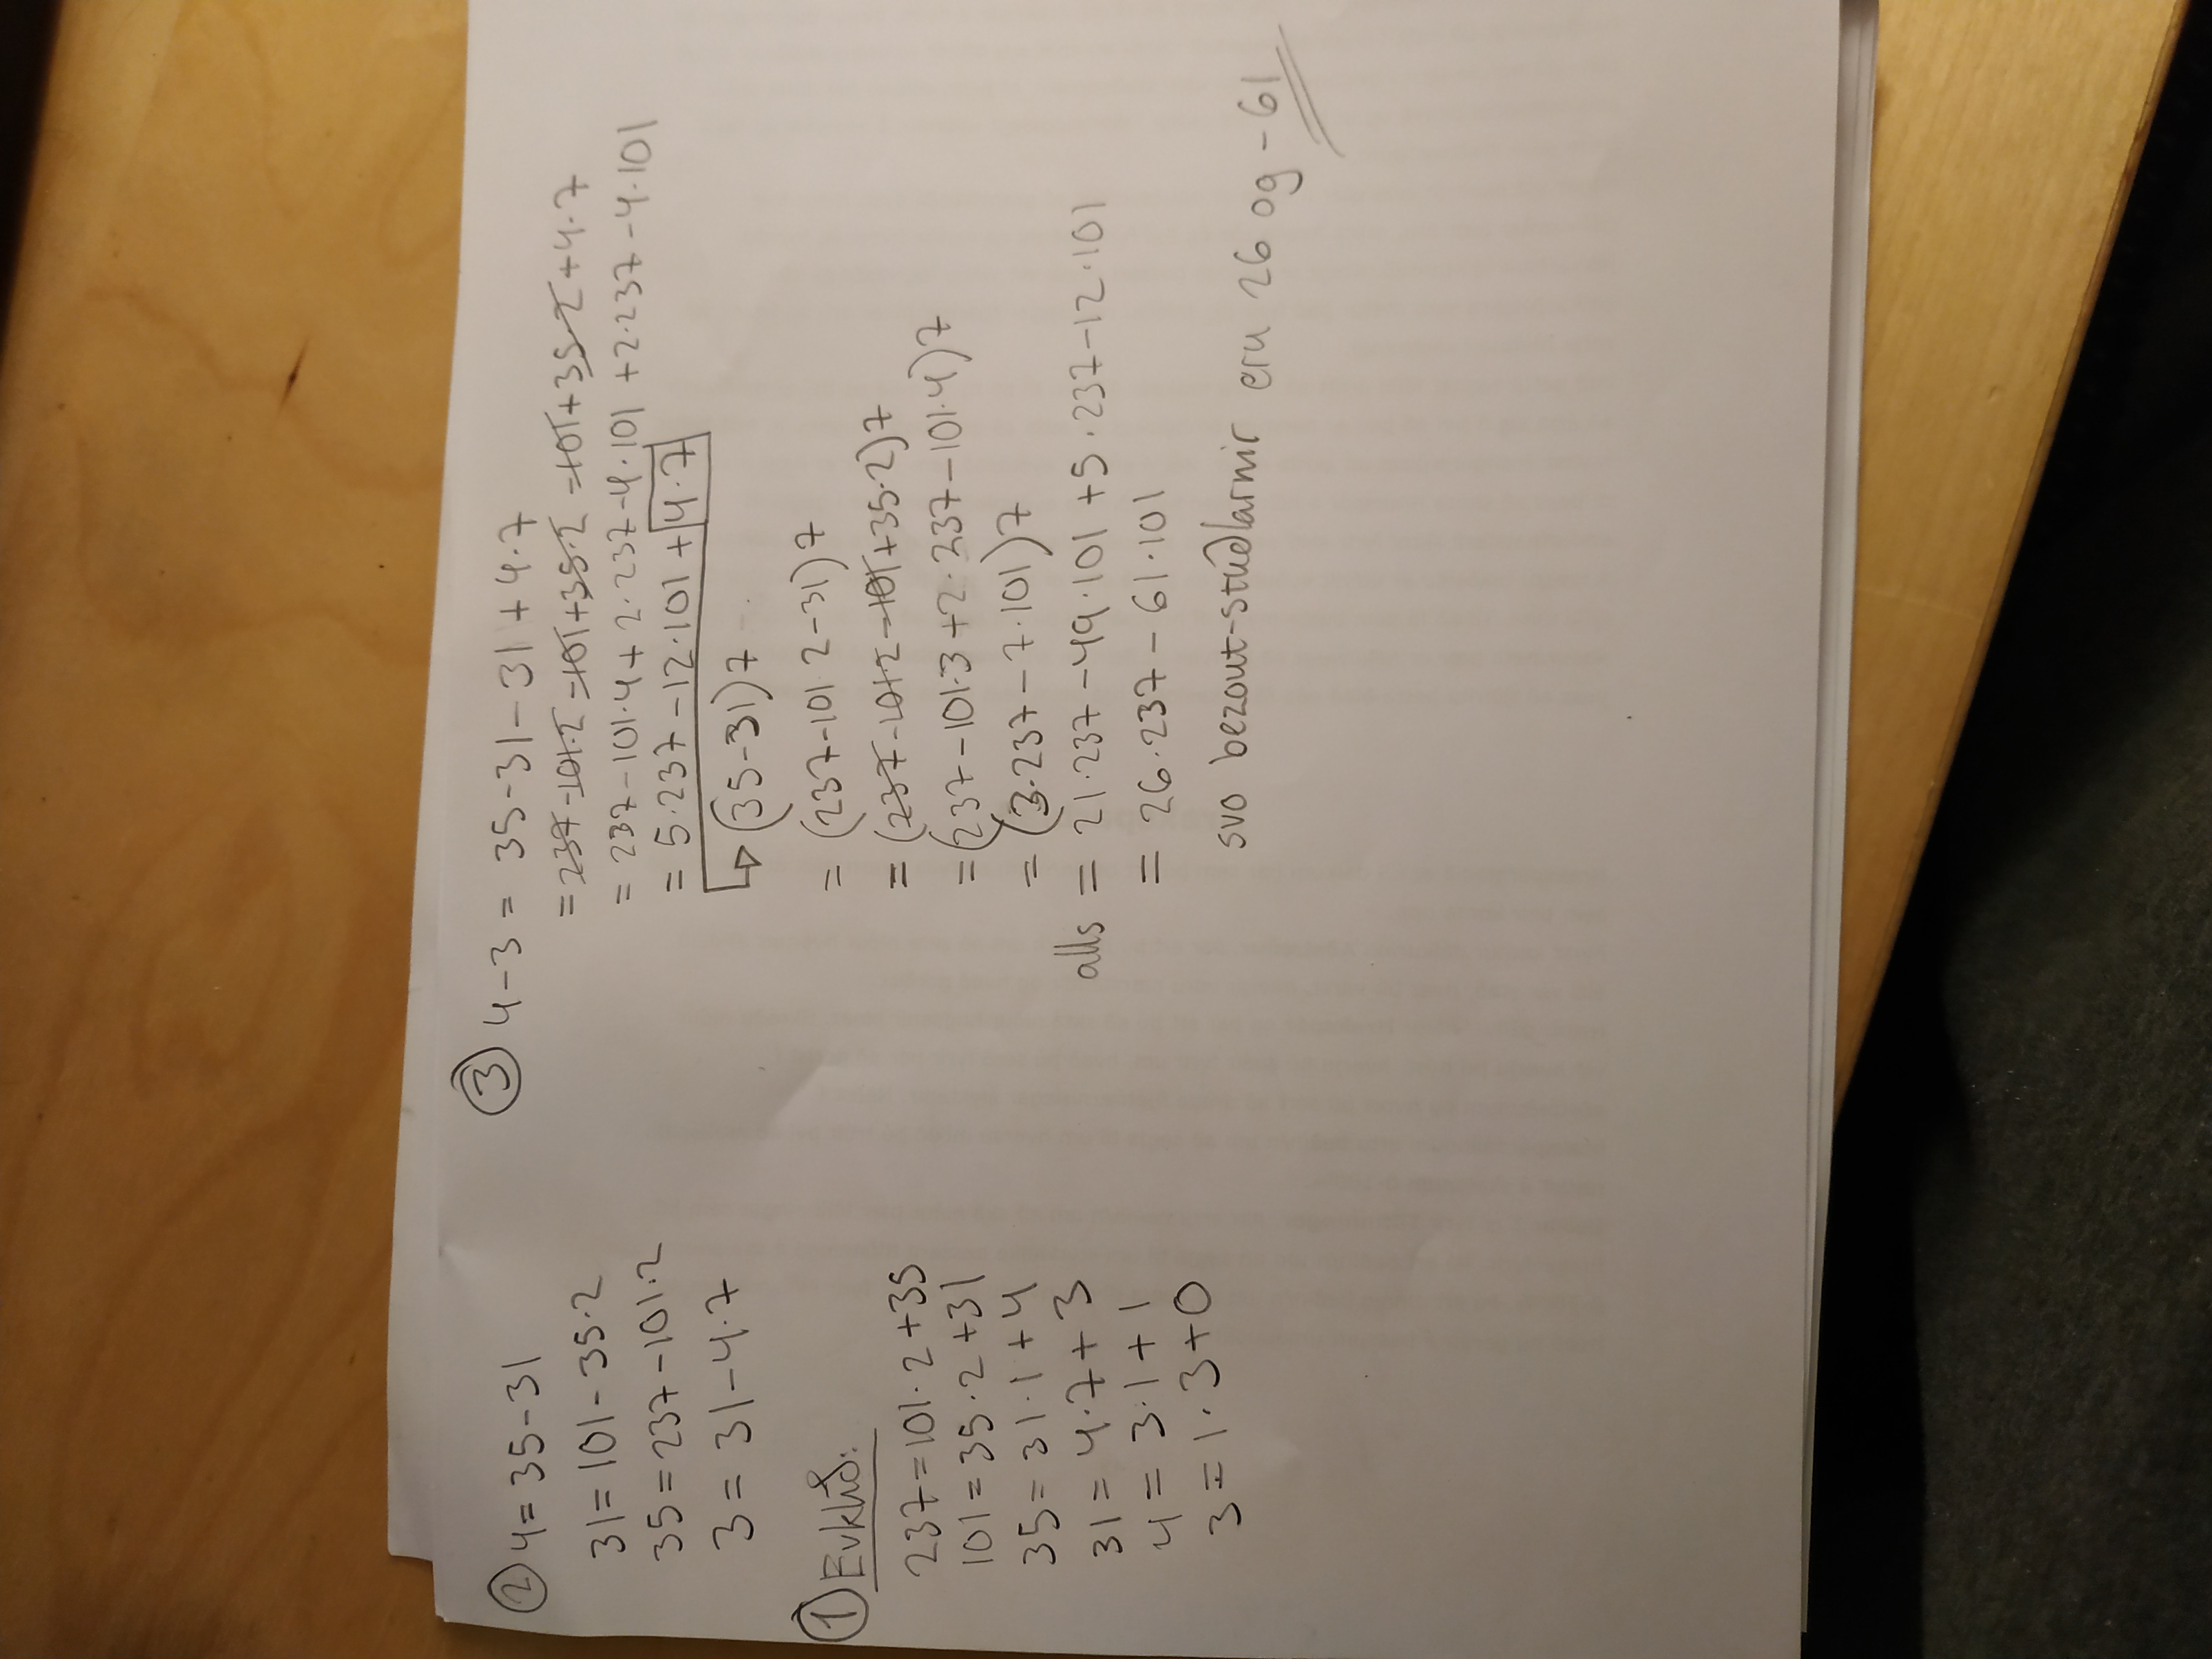 ② 4 = 35 - 31
31 = 101 - 35·2
35 = 237 - 101·2
3 = 31 - 4·7
① Evklíð:
237 = 101·2 + 35
101 = 35·2 + 31
35 = 31·1 + 4
31 = 4·7 + 3
4 = 3·1 + 1
3 = 1·3 + 0
③ 4 - 3 = 35 - 31 - 31 + 4·7
= 237 - 101·2 - 101 + 35·2 - 101 + 35·2 + 4·7
= 237 - 101·4 + 2·237 - 4·101 + 2·237 - 4·101
= 5·237 - 12·101 + 4·7
(35 - 31)7
= (237 - 101 2 - 31)7
= (237 - 101·2 - 101 + 35·2)7
= (237 - 101·3 + 2·237 - 101·4)7
= (3·237 - 7·101)7
alls = 21·237 - 49·101 + 5·237 - 12·101
= 26·237 - 61·101
svo bezout-stuðlarnir eru 26 og -61